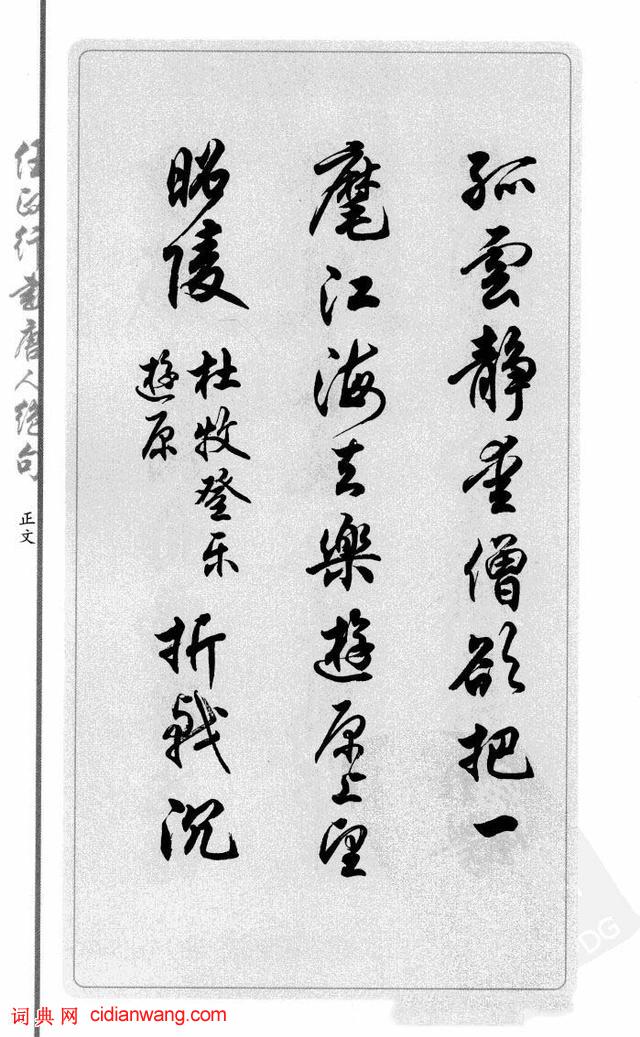 孤雲静愛僧欲把一
麾江海去樂遊原上望
昭陵
杜牧登乐
遊原
折戟沉
任政行書唐人绝句
正文
词典网 cidianwang.com
DG